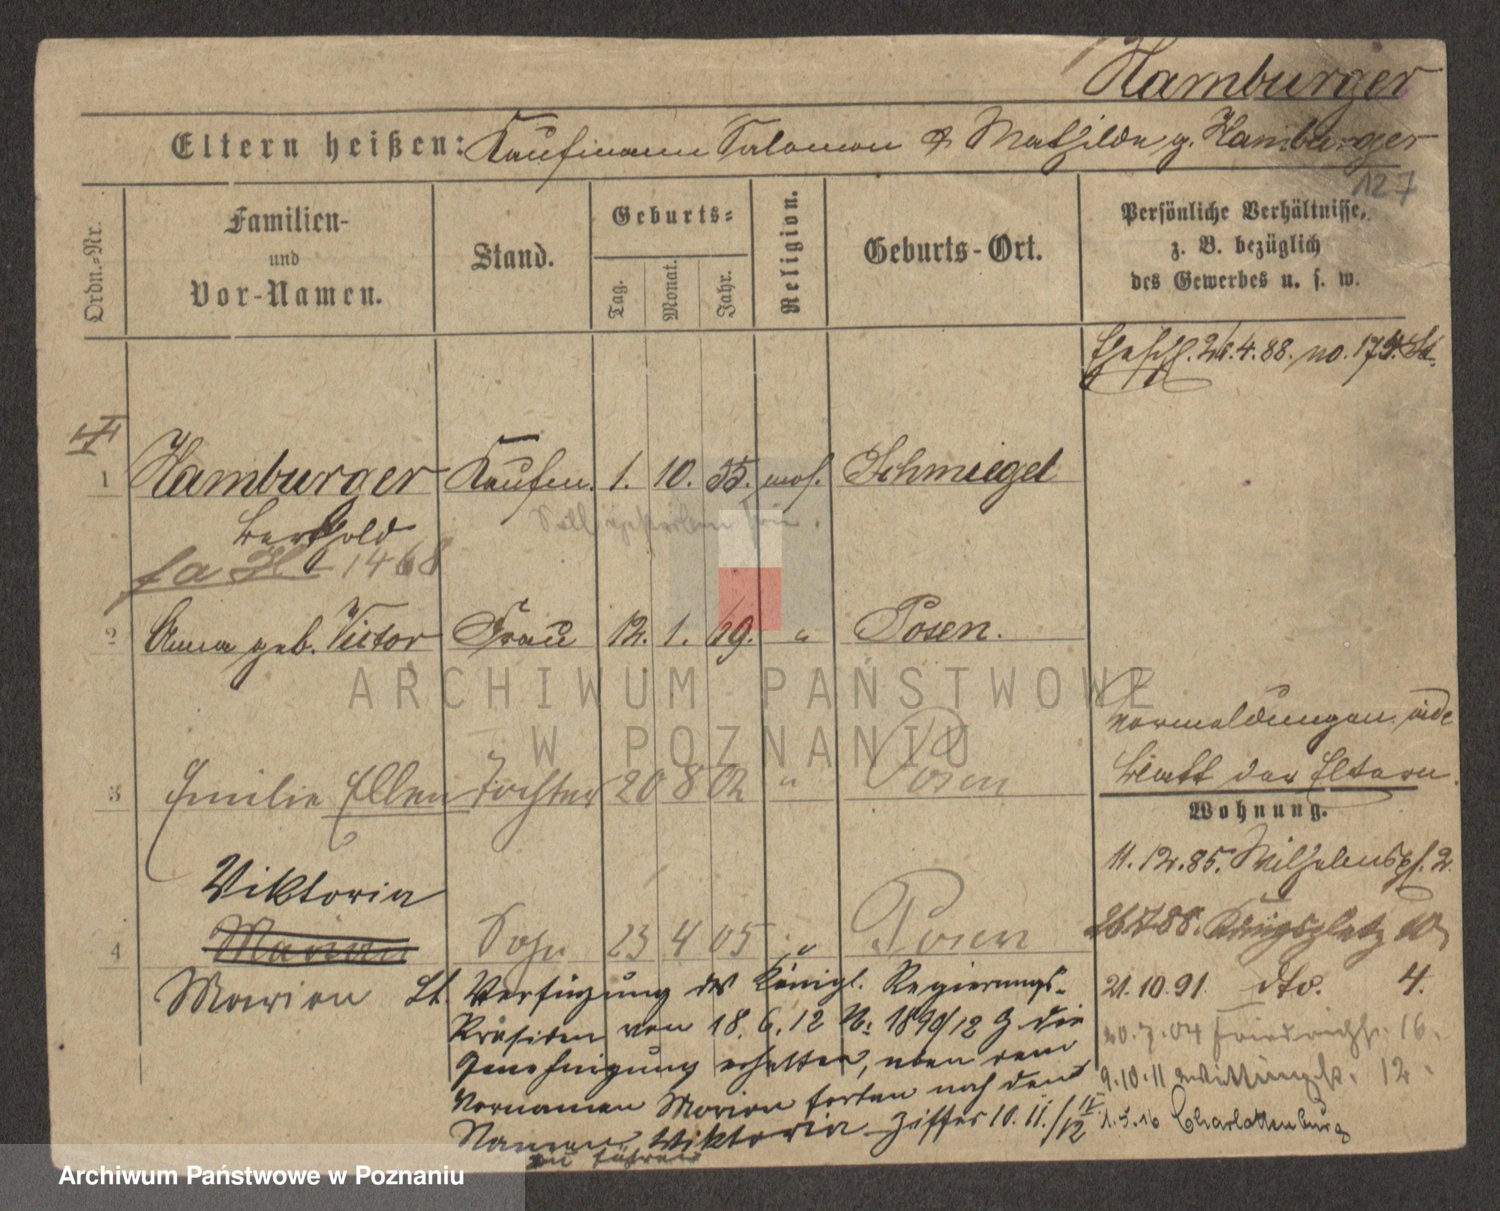 Hamburger
Eltern heißen: Kaufmann Salomon & Mathilde g. Hamburger
127
Ordn.-Nr.
Familien-
und
Vor-Namen.
Stand.
Geburts-
Tag.
Monat.
Jahr.
Religion.
Geburts-Ort.
Persönliche Verhältnisse,
z. B. bezüglich
des Gewerbes u. s. w.
4.88. no.
1 Hamburger Kaufm. 1. 10. 55. mos. Schmiegel
Berthold
1468
2 Anna geb. Victor Frau 12. 1. 69. " Posen.
Vormeldungen
Blatt der Eltern.
3 Emilie Ellen Tochter 20 8 02 " Posen
Wohnung.
11.12.85. Wilhelmspl. 2.
Viktoria
4 Marion 23 4 05 " Posen
Königsplatz
Marion Lt. Verfügung des Königl. Regierungs-
Präsiden von 18. 6. 12 No 1890/12 die
Genehmigung erhalten, neben dem
Vornamen Marion fortan noch den
Namen Viktoria zu führen
Ziffer 10. 11./IV 12
21.10.91. dto. 4.
20.7.04 Friedrichstr. 16.
9.10.11 12.
1.3.16 Charlottenburg
ARCHIWUM PAŃSTWOWE
W POZNANIU
Archiwum Państwowe w Poznaniu